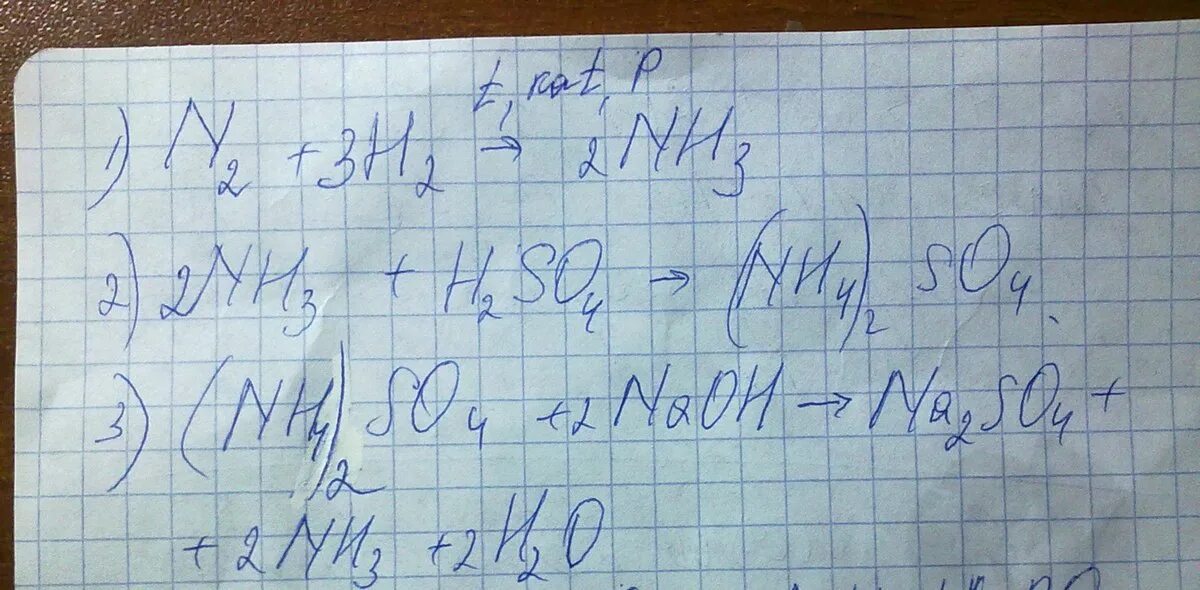 t, kat, P
1) N₂ + 3H₂ → 2NH₃
2) 2NH₃ + H₂SO₄ → (NH₄)₂ SO₄.
3) (NH₄)₂ SO₄ + 2NaOH → Na₂SO₄ +
+ 2NH₃ + 2H₂O